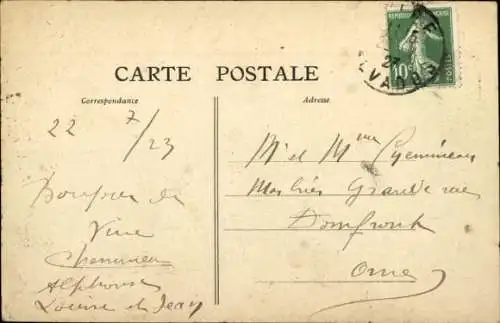 CARTE POSTALE
Correspondance
Adresse
REPUBLIQUE FRANÇAISE
10
POSTES
22 7/23
Bonjour de
Vire
Alphonse
Louise et Jean
M et Mme
Grande rue
Domfront
Orne